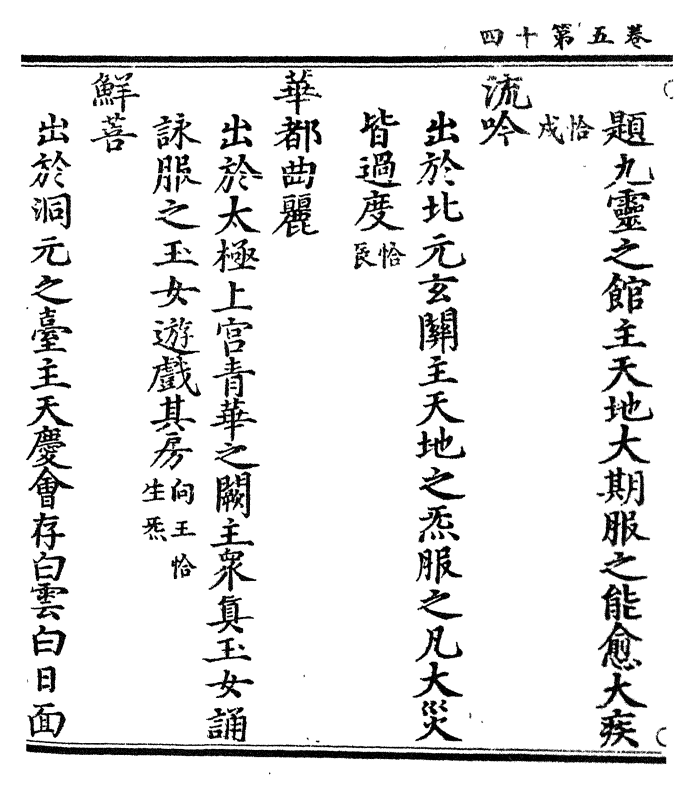 四十第五卷
題九靈之館主天地大期服之能愈大疾
恰戌
流吟
出於北元玄關主天地之炁服之凡大災
皆過度恰辰
華都曲麗
出於太極上宮青華之闕主衆真玉女誦
詠服之玉女遊戲其房向王恰生炁
鮮菩
出於洞元之臺主天慶會存白雲白日面